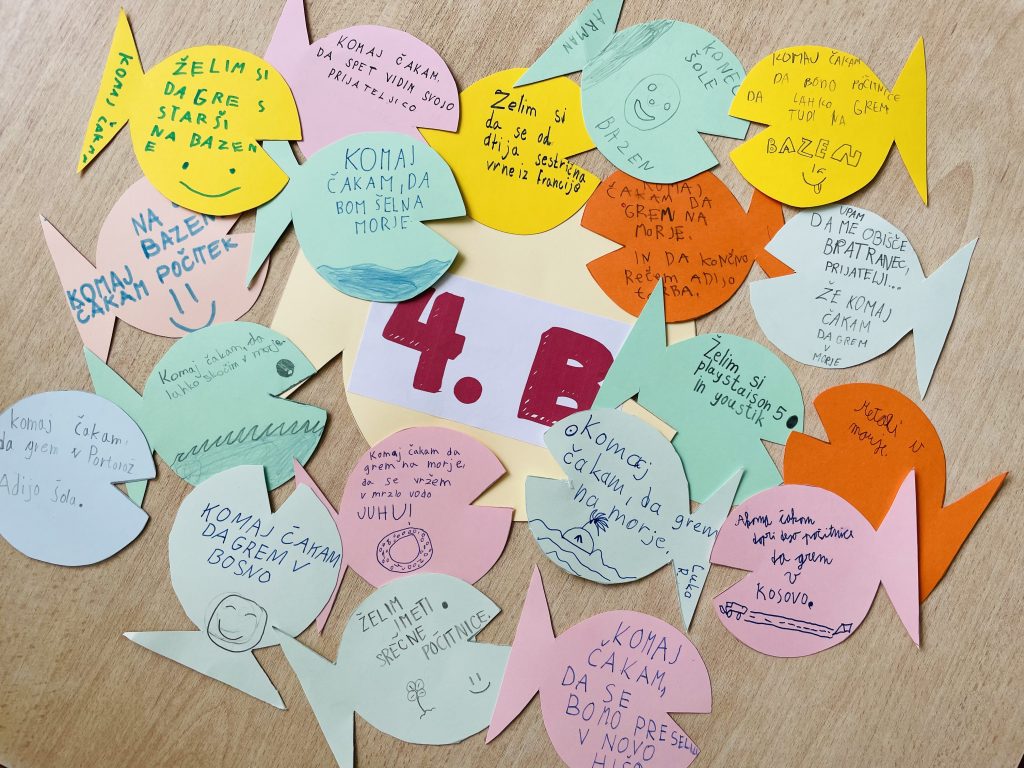 KOMAJ ČAKAM
ŽELIM SI
DA GRE S
STARŠI
NA BAZEN
E
KOMAJ ČAKAM,
DA SPET VIDIM SVOJO
PRIJATELJICO
Želim si
da se od
sestrična
vrne iz francije
ARMAN
KONEC
ŠOLE
BAZEN
KOMAJ ČAKAM
DA BODO POČITNICE
DA LAHKO GREM
TUDI NA
BAZEN
NA
BAZEN
KOMAJ
ČAKAM POČITEK
KOMAJ
ČAKAM, DA
BOM ŠEL NA
MORJE
KOMAJ
ČAKAM DA
GREM NA
MORJE.
IN DA KONČNO
Rečem ADIJO
UPAM
DA ME OBIŠČE
BRATRANEC,
PRIJATELJI...
ŽE KOMAJ
ČAKAM
DA GREM
V
MORJE
4. B
Komaj čakam, da
lahko skočim v morje.
Želim si
playstaison 5
In youstik
Komaj čakam,
da grem v Portorož
Adijo šola.
Komaj čakam da
grem na morje,
da se vržem
v mrzlo vodo
JUHU!
Komaj
čakam, da grem
na morje.
Luka
R
v
morje.
KOMAJ ČAKAM
DA GREM V
BOSNO
čakam
počitnice
da grem
v
KOSOVO.
ŽELIM
IMETI
SREČNE
POČITNICE.
KOMAJ
ČAKAM,
DA SE
BOMO PRESELILI
V NOVO
HIŠO